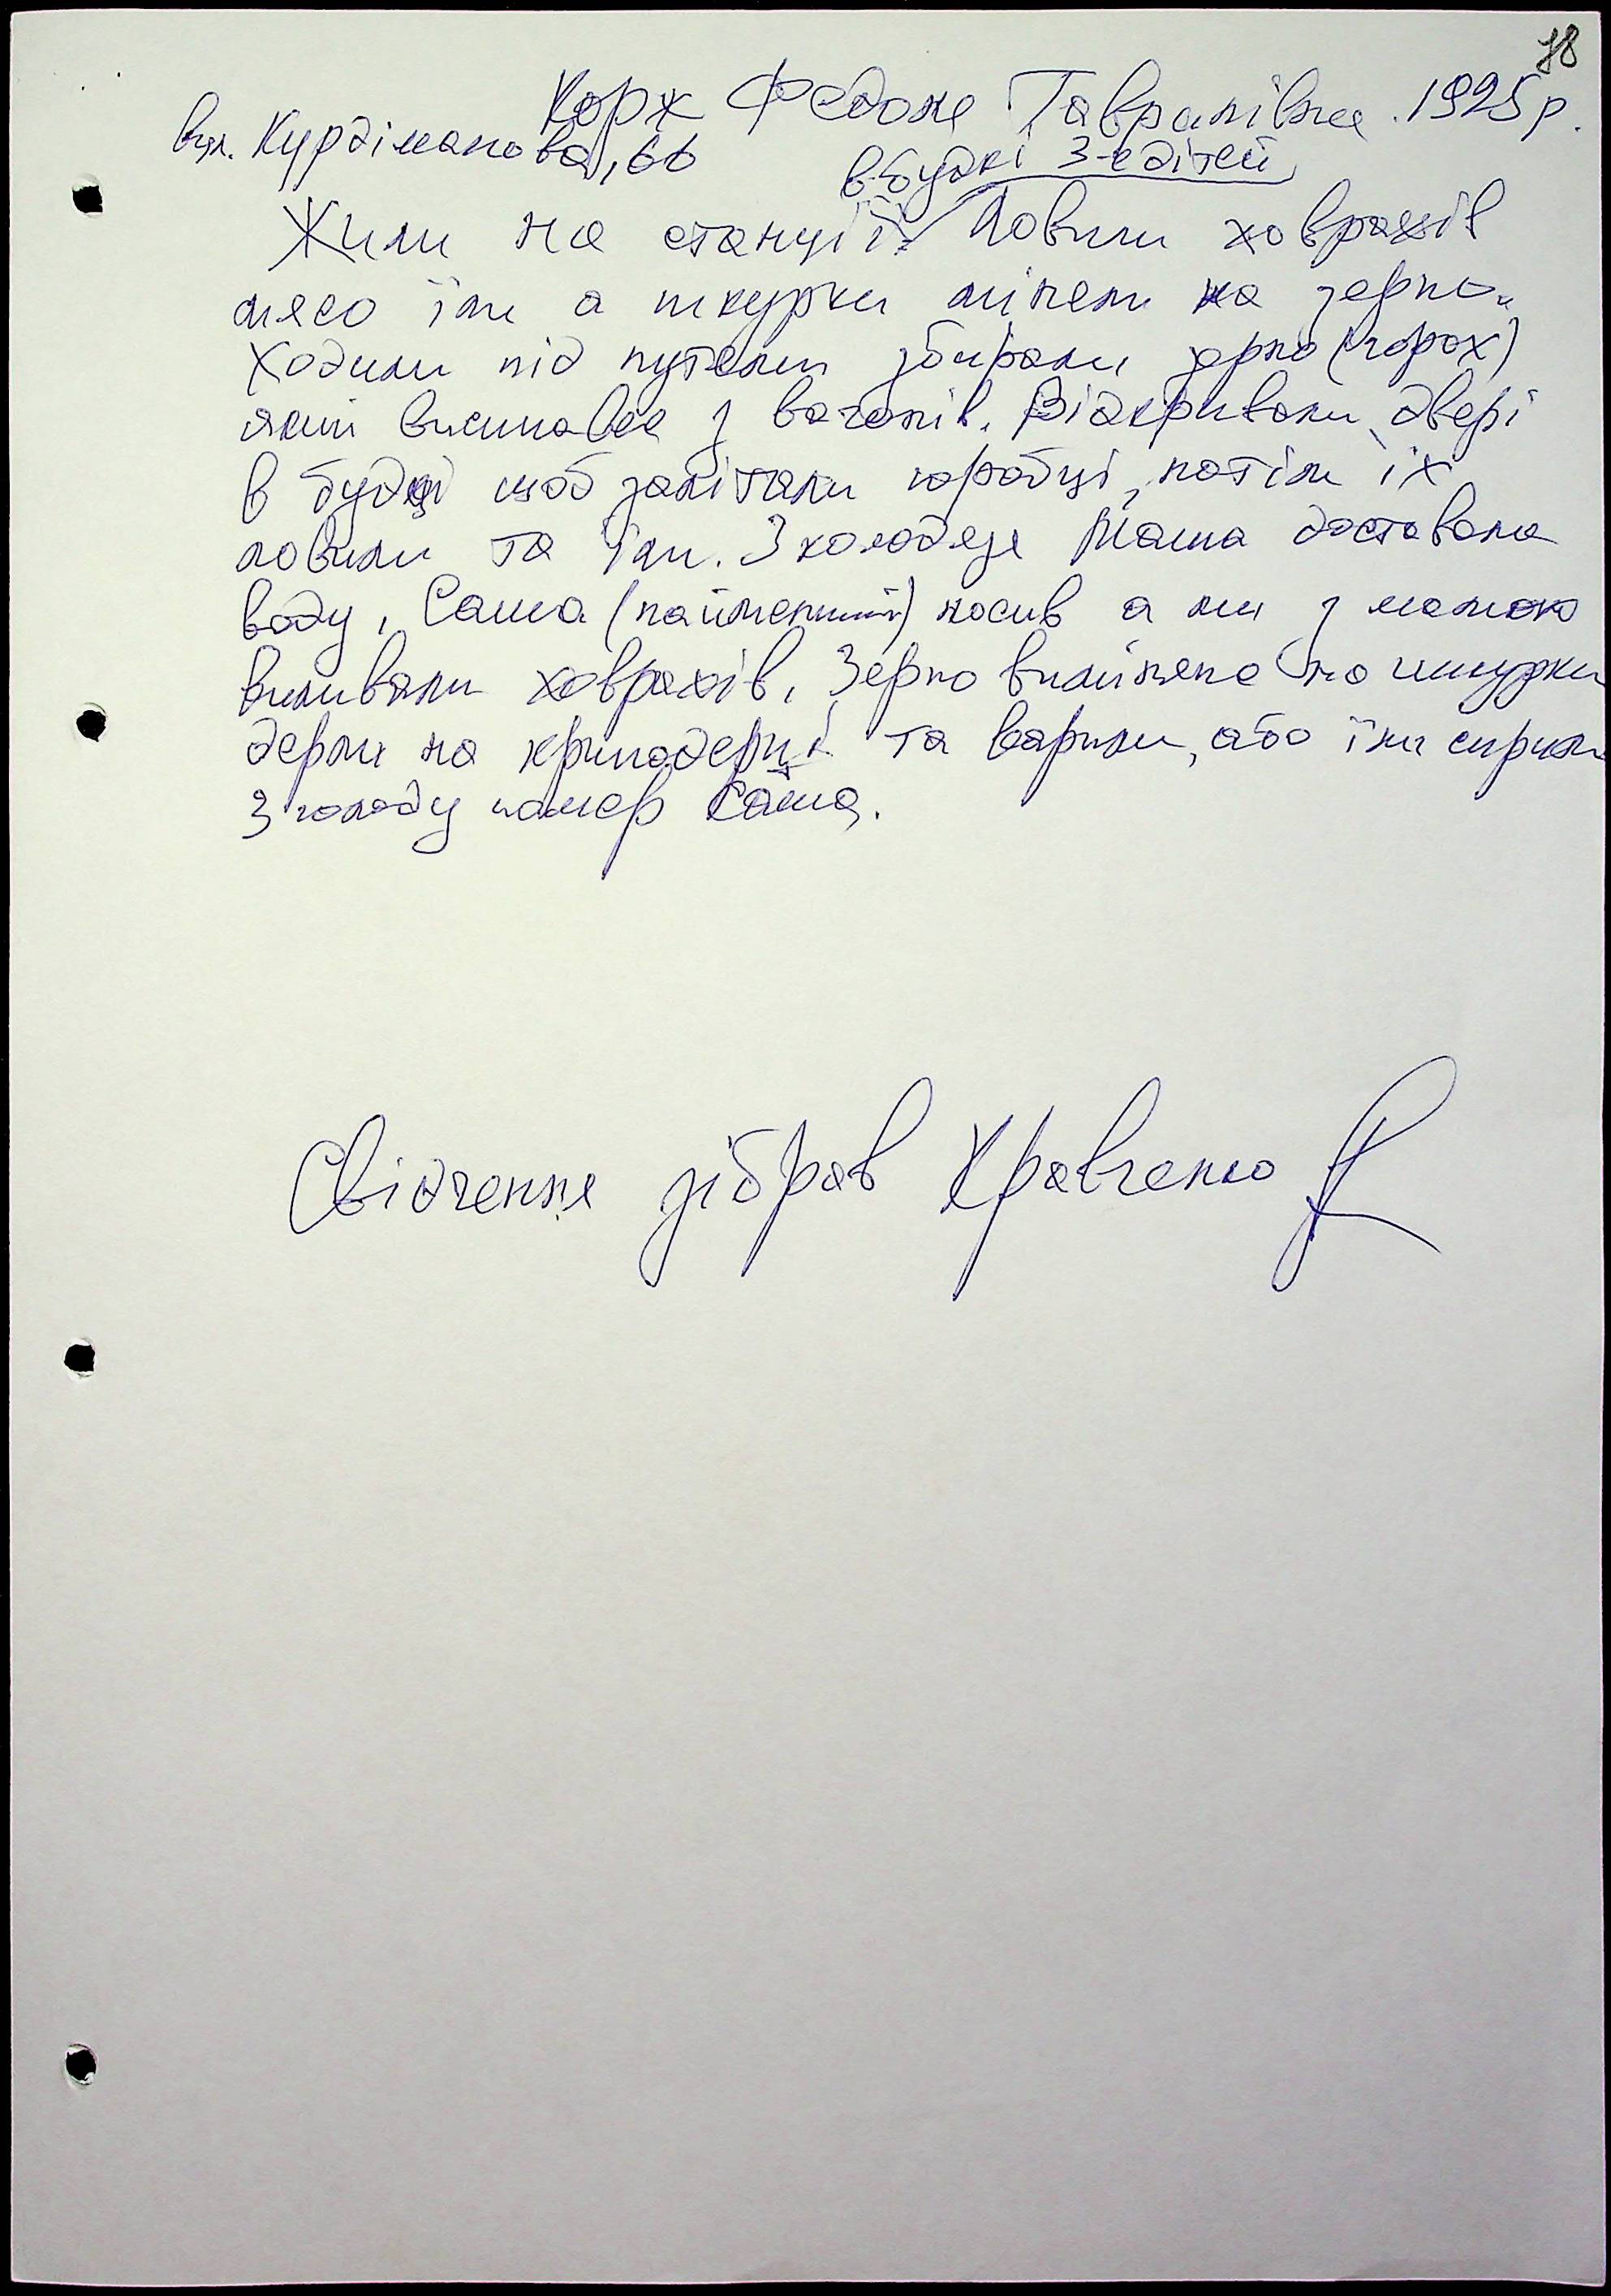 78
Корж Федоня Гаврилівна. 1925 р.
вул. Курдіманова, 66
в будкі 3-є дітей
Жили на станції. Ловили ховрахів
мясо їли а шкурки міняли на зерно.
Ходили під путями збирали зерно (горох)
який висипався з вагонів. Відкривали двері
в будці щоб залітали горобці, потім їх
ловили та їли. З колодязя Маша доставала
воду, Саша (найменший) носив а ми з мамою
виливали ховрахів. Зерно виміняне на шкурки
дерли на круподерці та варили, або їли сирим
З голоду помер Саша.
Свідчення зібрав Кравченко